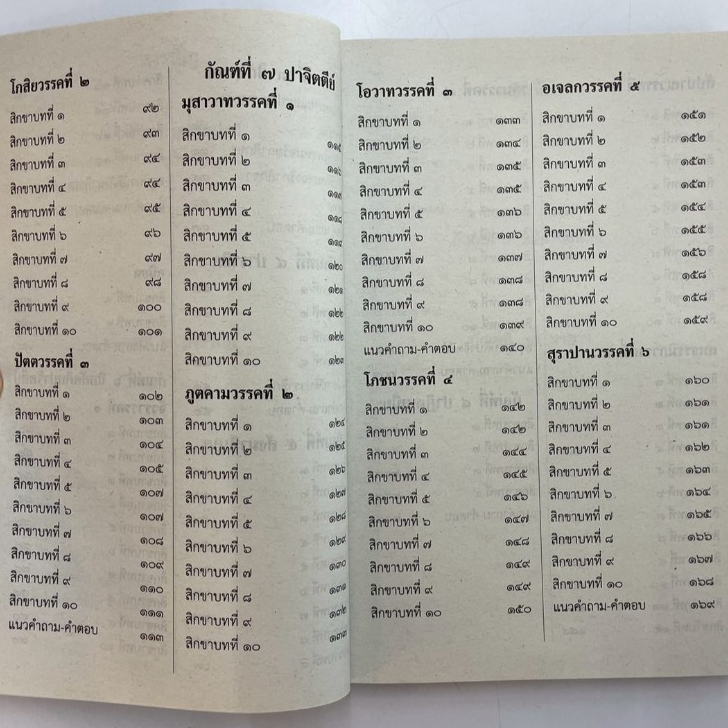 โกสิยวรรคที่ ๒
สิกขาบทที่ ๑ ๙๒
สิกขาบทที่ ๒ ๙๓
สิกขาบทที่ ๓ ๙๔
สิกขาบทที่ ๔ ๙๔
สิกขาบทที่ ๕ ๙๕
สิกขาบทที่ ๖ ๙๖
สิกขาบทที่ ๗ ๙๗
สิกขาบทที่ ๘ ๙๘
สิกขาบทที่ ๙ ๑๐๐
สิกขาบทที่ ๑๐ ๑๐๑
ปัตตวรรคที่ ๓
สิกขาบทที่ ๑ ๑๐๒
สิกขาบทที่ ๒ ๑๐๓
สิกขาบทที่ ๓ ๑๐๔
สิกขาบทที่ ๔ ๑๐๕
สิกขาบทที่ ๕ ๑๐๗
สิกขาบทที่ ๖ ๑๐๗
สิกขาบทที่ ๗ ๑๐๘
สิกขาบทที่ ๘ ๑๐๙
สิกขาบทที่ ๙ ๑๑๐
สิกขาบทที่ ๑๐ ๑๑๑
แนวคำถาม-คำตอบ ๑๑๓
กัณฑ์ที่ ๗ ปาจิตตีย์
มุสาวาทวรรคที่ ๑
สิกขาบทที่ ๑ ๑๑๕
สิกขาบทที่ ๒ ๑๑๖
สิกขาบทที่ ๓
สิกขาบทที่ ๔ ๑๑๘
สิกขาบทที่ ๕ ๑๑๙
สิกขาบทที่ ๖ ๑๒๐
สิกขาบทที่ ๗ ๑๒๑
สิกขาบทที่ ๘ ๑๒๒
สิกขาบทที่ ๙ ๑๒๒
สิกขาบทที่ ๑๐ ๑๒๓
ภูตคามวรรคที่ ๒
สิกขาบทที่ ๑ ๑๒๔
สิกขาบทที่ ๒ ๑๒๕
สิกขาบทที่ ๓ ๑๒๖
สิกขาบทที่ ๔ ๑๒๗
สิกขาบทที่ ๕ ๑๒๘
สิกขาบทที่ ๖ ๑๒๙
สิกขาบทที่ ๗ ๑๓๐
สิกขาบทที่ ๘ ๑๓๑
สิกขาบทที่ ๙ ๑๓๒
สิกขาบทที่ ๑๐ ๑๓๓
โอวาทวรรคที่ ๓
สิกขาบทที่ ๑ ๑๓๓
สิกขาบทที่ ๒ ๑๓๔
สิกขาบทที่ ๓ ๑๓๕
สิกขาบทที่ ๔ ๑๓๕
สิกขาบทที่ ๕ ๑๓๖
สิกขาบทที่ ๖ ๑๓๖
สิกขาบทที่ ๗ ๑๓๗
สิกขาบทที่ ๘ ๑๓๘
สิกขาบทที่ ๙ ๑๓๘
สิกขาบทที่ ๑๐ ๑๓๙
แนวคำถาม-คำตอบ ๑๔๐
โภชนวรรคที่ ๔
สิกขาบทที่ ๑ ๑๔๒
สิกขาบทที่ ๒ ๑๔๒
สิกขาบทที่ ๓ ๑๔๔
สิกขาบทที่ ๔ ๑๔๕
สิกขาบทที่ ๕ ๑๔๖
สิกขาบทที่ ๖ ๑๔๗
สิกขาบทที่ ๗ ๑๔๘
สิกขาบทที่ ๘ ๑๔๙
สิกขาบทที่ ๙ ๑๔๙
สิกขาบทที่ ๑๐ ๑๕๐
อเจลกวรรคที่ ๕
สิกขาบทที่ ๑ ๑๕๑
สิกขาบทที่ ๒ ๑๕๒
สิกขาบทที่ ๓ ๑๕๓
สิกขาบทที่ ๔ ๑๕๓
สิกขาบทที่ ๕ ๑๕๔
สิกขาบทที่ ๖ ๑๕๕
สิกขาบทที่ ๗ ๑๕๖
สิกขาบทที่ ๘ ๑๕๘
สิกขาบทที่ ๙ ๑๕๘
สิกขาบทที่ ๑๐ ๑๕๙
สุราปานวรรคที่ ๖
สิกขาบทที่ ๑ ๑๖๐
สิกขาบทที่ ๒ ๑๖๑
สิกขาบทที่ ๓ ๑๖๑
สิกขาบทที่ ๔ ๑๖๒
สิกขาบทที่ ๕ ๑๖๓
สิกขาบทที่ ๖ ๑๖๔
สิกขาบทที่ ๗ ๑๖๕
สิกขาบทที่ ๘ ๑๖๖
สิกขาบทที่ ๙ ๑๖๗
สิกขาบทที่ ๑๐ ๑๖๘
แนวคำถาม-คำตอบ ๑๖๙